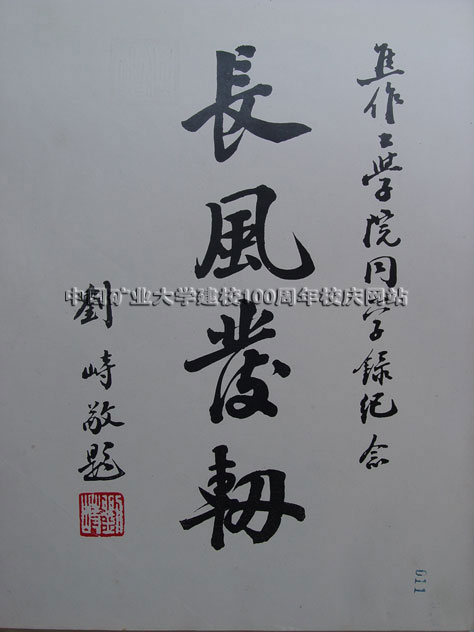 焦作工學院同学録紀念
長風發軔
劉峙敬題
劉峙
中国矿业大学建校100周年校庆网站
011